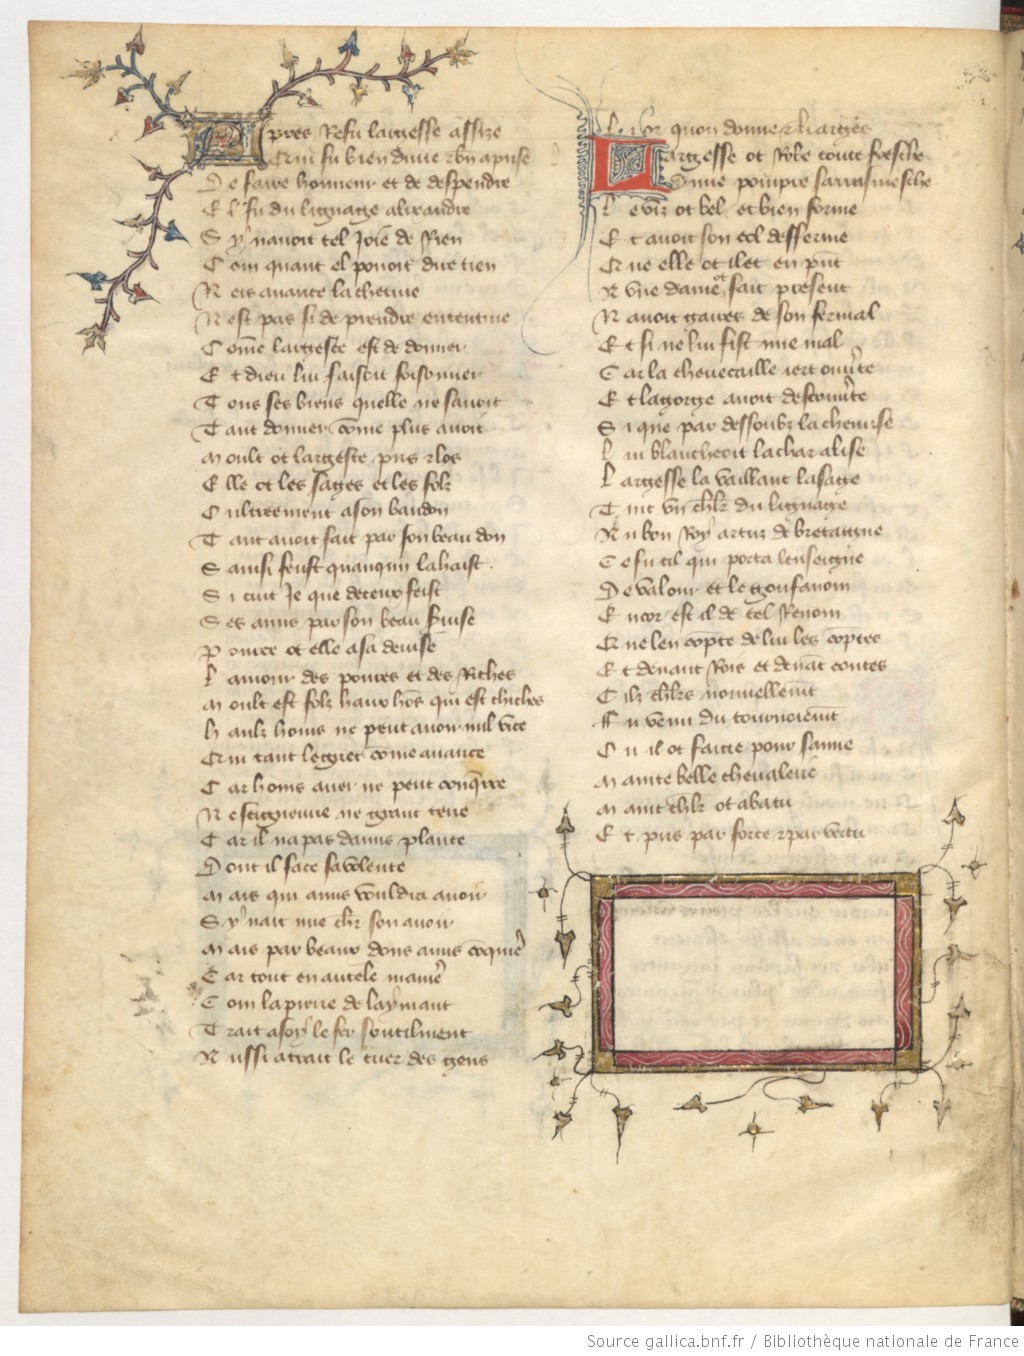 Apres Refu largesse assize
Qui fu bien duite et bn aprise
De faire honneur et de despendre
El fu du lignage alixandre
Sy nauoit tel Joie de Rien
Com quant el pouoit dire tien
Neis auarice la chetiue
Nest pas si de prendre ententiue
Come largesce est de donner
Et dieu lui faisoit foisonner
Tous ses biens quelle ne sauoit
Tant donner come plus auoit
Moult ot largesce pris et los
Elle ot les sages et les folz
Oultreement a son bandon
Tant auoit fait par son beau don
Sainsi feust quaucun la haist
Si cuit Je que de ceux feist
Ses amis par son beau seruise
Pource ot elle a sa deuise
Lamour des poures et des Riches
Moult est folz haux hos qui est chiches
haulz homs ne peut auoir nul vice
Qui tant le griet come auarice
Car homs auer ne peut conqrre
Ne seigneurie ne grant terre
Car il na pas damis plante
Dont il face sa volente
Mais qui amis vouldra auoir
Sy nait mie chr son auoir
Mais par beaux dons amis
Car tout en autele manie
Com la pierre de laymant
Trait a soy le fer soutilment
Aussi atrait le cuer des gens
Lor quon donne et li argēs
Largesse ot Robe toute fresche
Dune pourpre sarrasinesche
Le viz ot bel et bien forme
Et auoit son col desferme
Qr ne elle ot ilec en pnt
A vne dame fait present
Nauoit gaires de son fermal
Et si ne lui sist mie mal
Car la cheuecaille iert ouuerte
Et la gorge auoit descouuerte
Si que par dessoubz la chemise
lui blancheoit la char alise
Largesse la vaillant la sage
Tint vn chlr du lignage
Au bon Roy artur de bretaigne
Ce fu cil qui porta lenseigne
De valour et le gonfanon
Encor est il de tel Renom
Que len compte de lui les comptes
Et deuant Rois et deuāt contes
Cilz chlrs nouuellemt
Fu venu du tournoiemt
Ou il ot faicte pour samie
Mainte belle cheualerie
Maint chlr ot abatu
Et pris par force et par vertu
Source gallica.bnf.fr / Bibliothèque nationale de France